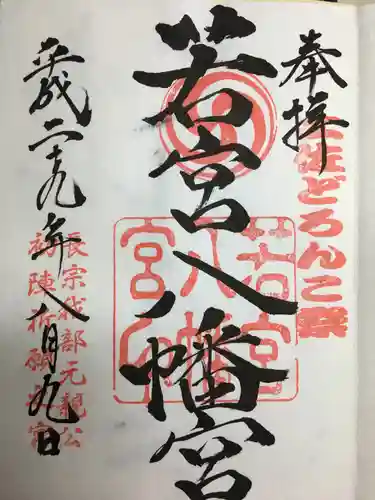 奉拝
土佐どろんこ祭
若宮八幡宮
若宮八幡宮印
平成二十九年八月九日
長宗我部元親公
初陣祈願之宮